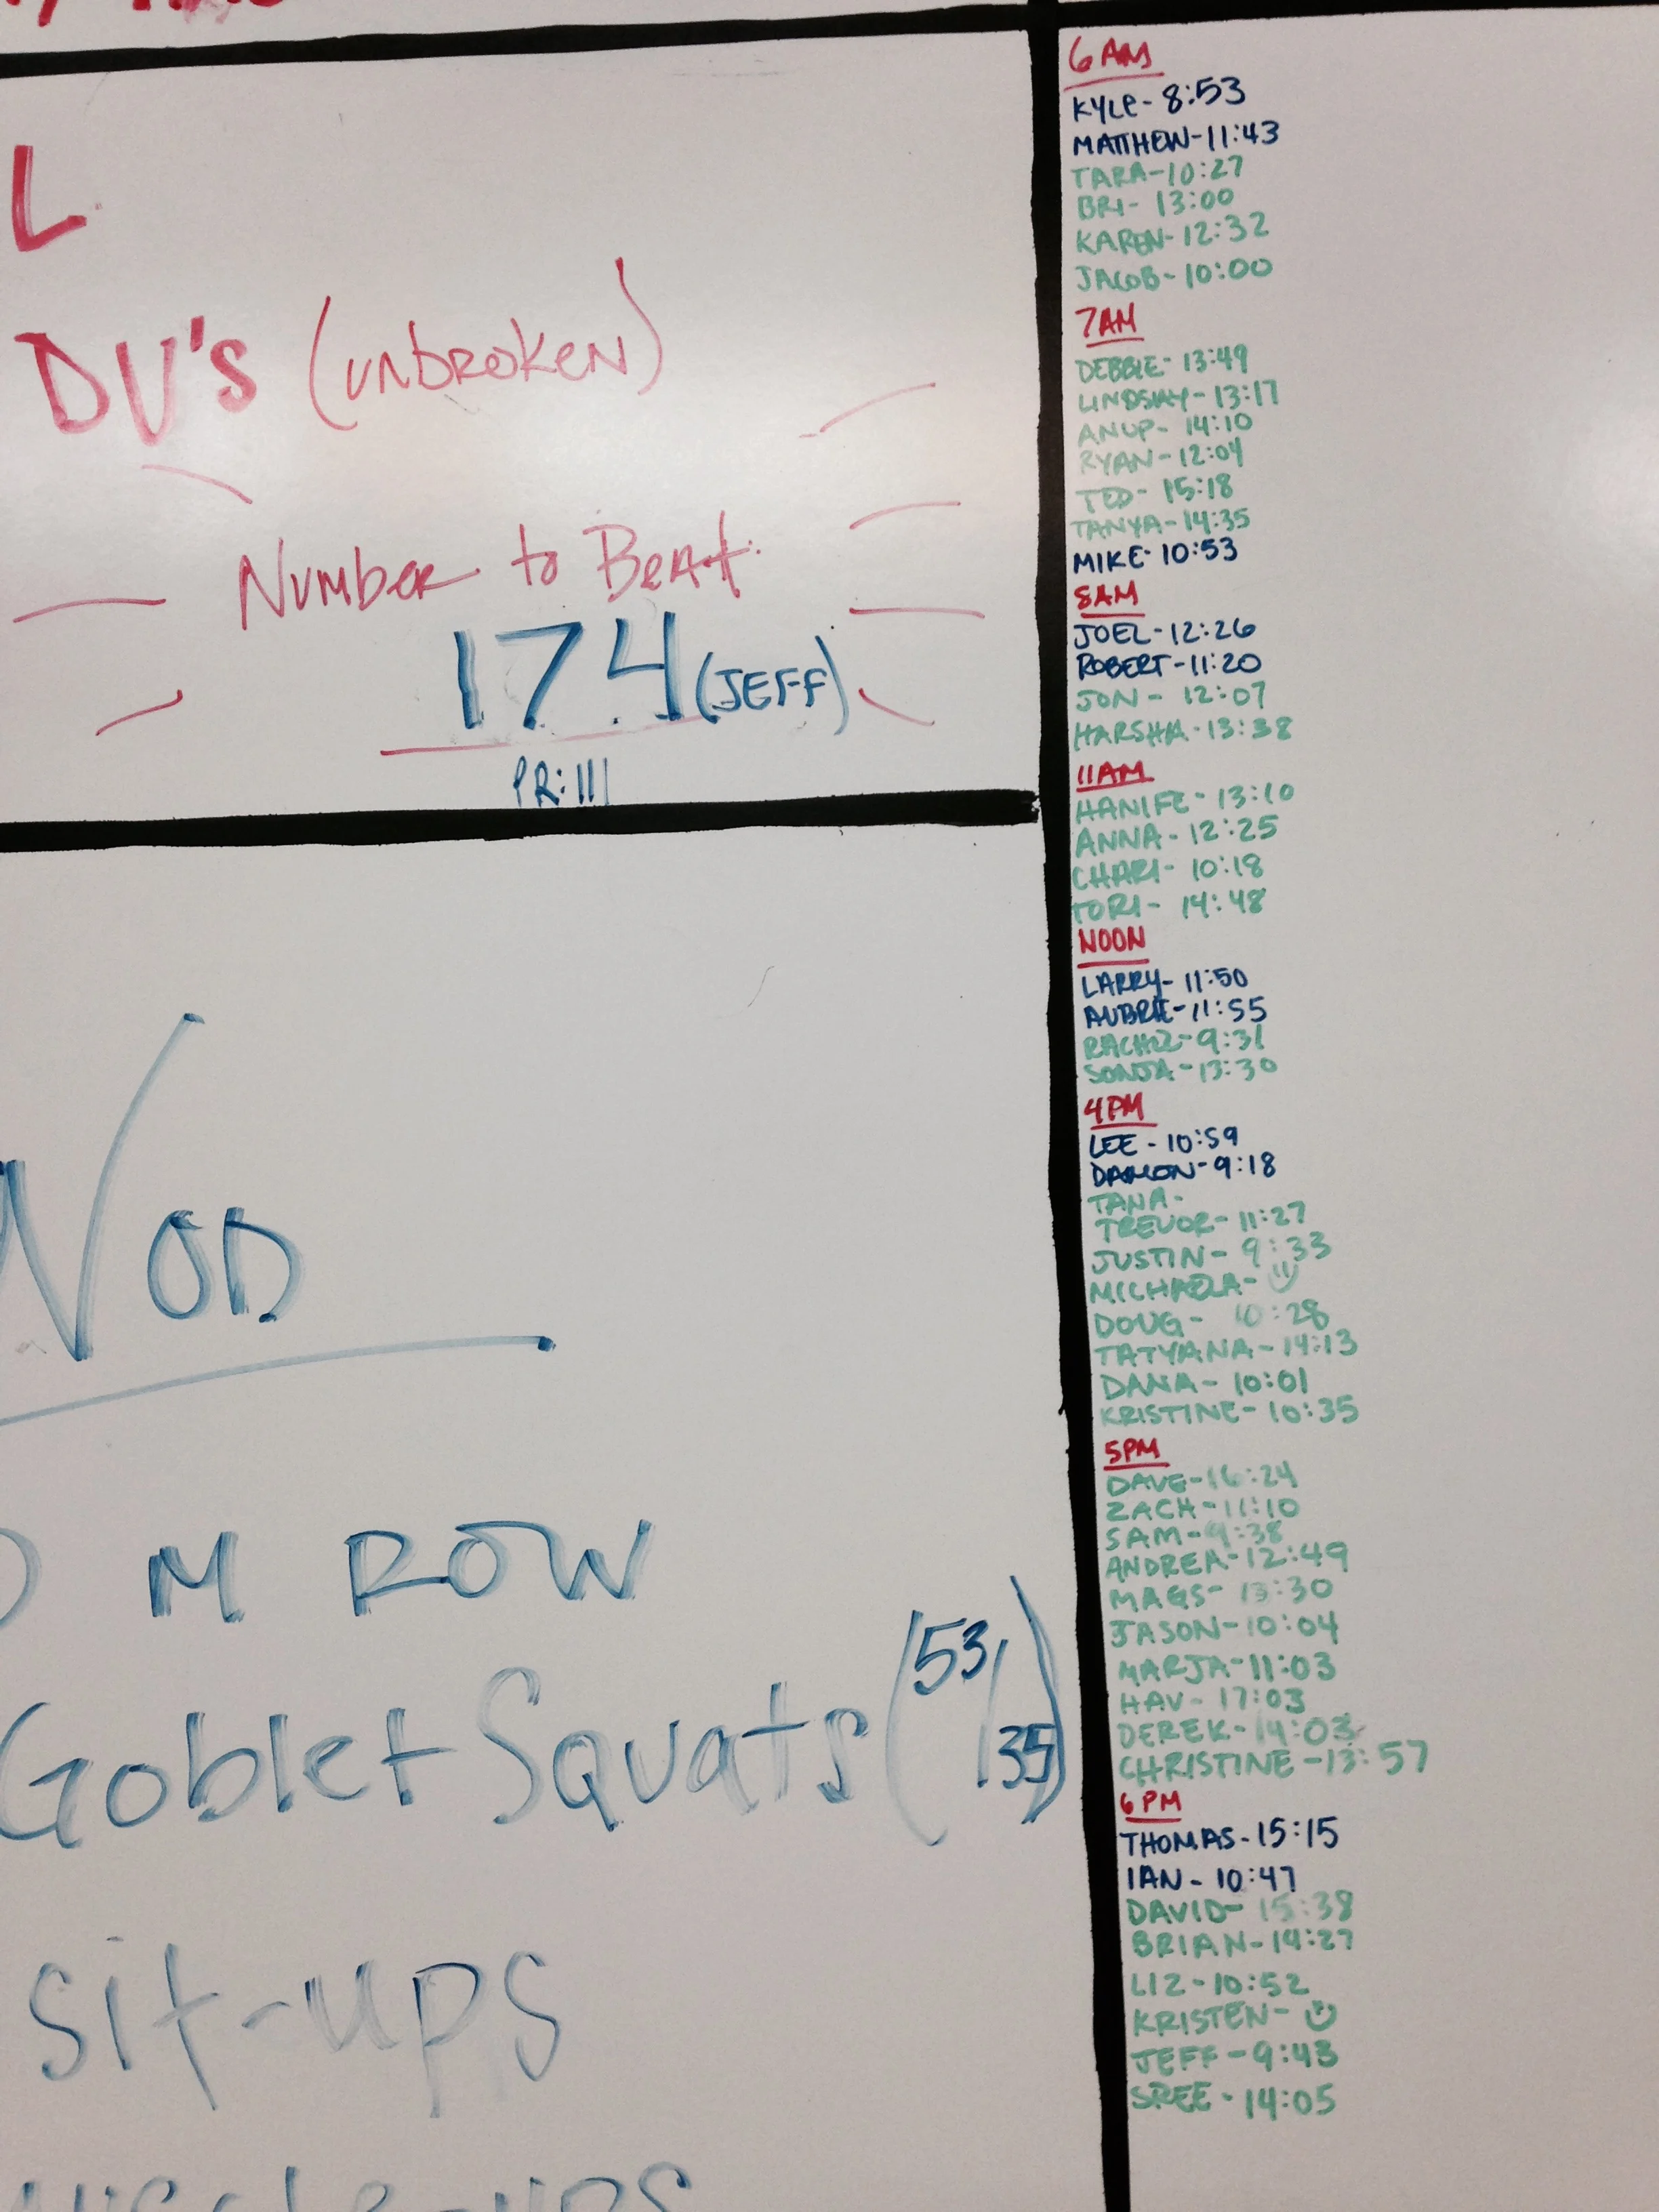 L
DU's (UNBROKEN)
Number to Beat:
174 (JEFF)
PR: 111
WOD
M ROW
Goblet Squats (53/35)
sit-ups
6AM
KYLE- 8:53
MATTHEW-11:43
TARA-10:27
BRI- 13:00
KAREN-12:32
JACOB-10:00
7AM
DEBBIE- 13:49
LINDSAY-13:17
ANUP- 14:10
RYAN-12:04
TED- 15:18
TANYA-14:35
MIKE- 10:53
8AM
JOEL-12:26
ROBERT-11:20
JON- 12:07
HARSHA-13:38
11AM
HANIFE- 13:10
ANNA-12:25
CHARI- 10:18
TORI- 14:48
NOON
LARRY- 11:50
AUBRIE-11:55
RACHEL-9:31
SONJA-13:30
4PM
LEE-10:59
DAMON-9:18
TANA-
TREVOR-11:27
JUSTIN- 9:33
MICHAELA-
DOUG- 10:28
TATYANA-14:13
DANA- 10:01
KRISTINE-10:35
5PM
DAVE-16:24
ZACH-11:10
SAM-9:38
ANDREA-12:49
MAGS- 13:30
JASON-10:04
MARJA-11:03
HAV- 17:03
DEREK-14:03
CHRISTINE-13:57
6PM
THOMAS-15:15
IAN- 10:47
DAVID- 15:38
BRIAN-14:27
LIZ-10:52
KRISTEN-
JEFF-9:43
SREE-14:05